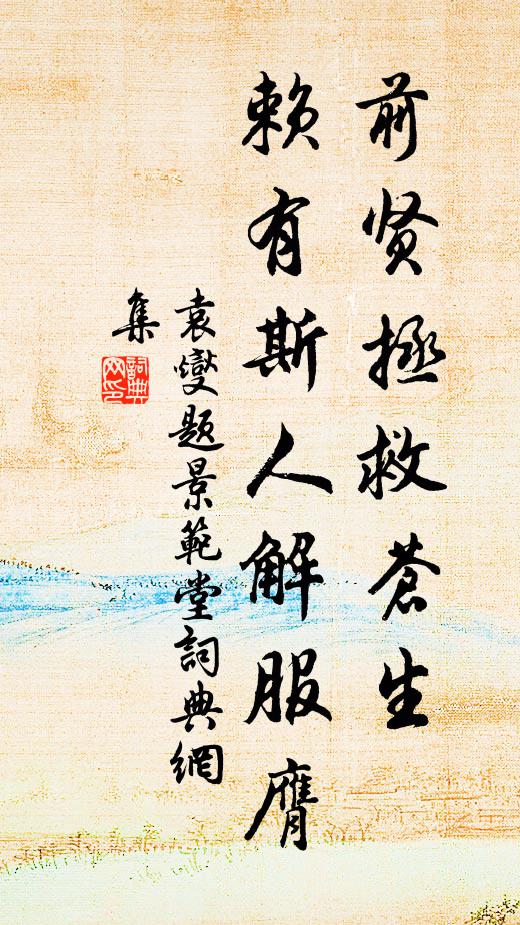 前贤拯救苍生
赖有斯人解服膺
袁燮题景範堂詞典網
集
詞典网印